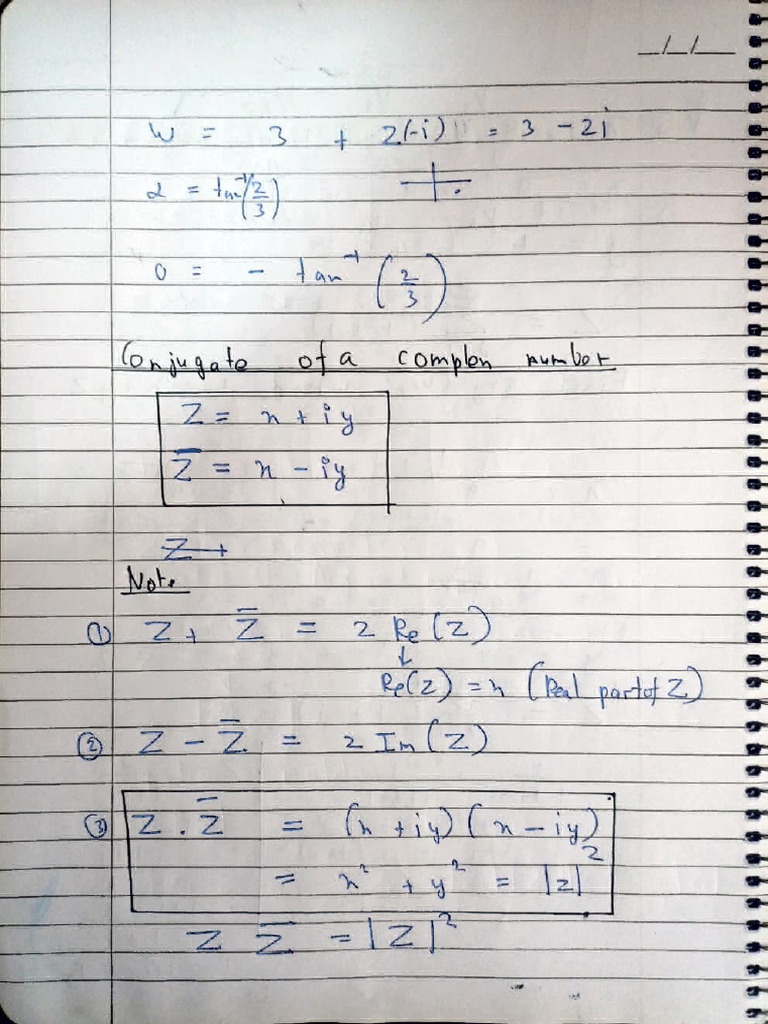 _/_/_
W = 3 + 2(-i) = 3 - 2i
α = tan⁻¹(2/3)
θ = - tan⁻¹ (2/3)
Conjugate of a complex number
Z = x + iy
Z̅ = x - iy
Z +
Note
① Z + Z̅ = 2 Re(Z)
↓
Re(Z) = x (Real part of Z)
② Z - Z̅ = 2 Im(Z)
③ Z . Z̅ = (x + iy) (x - iy)
= x² + y² = |z|²
Z Z̅ = |Z|²